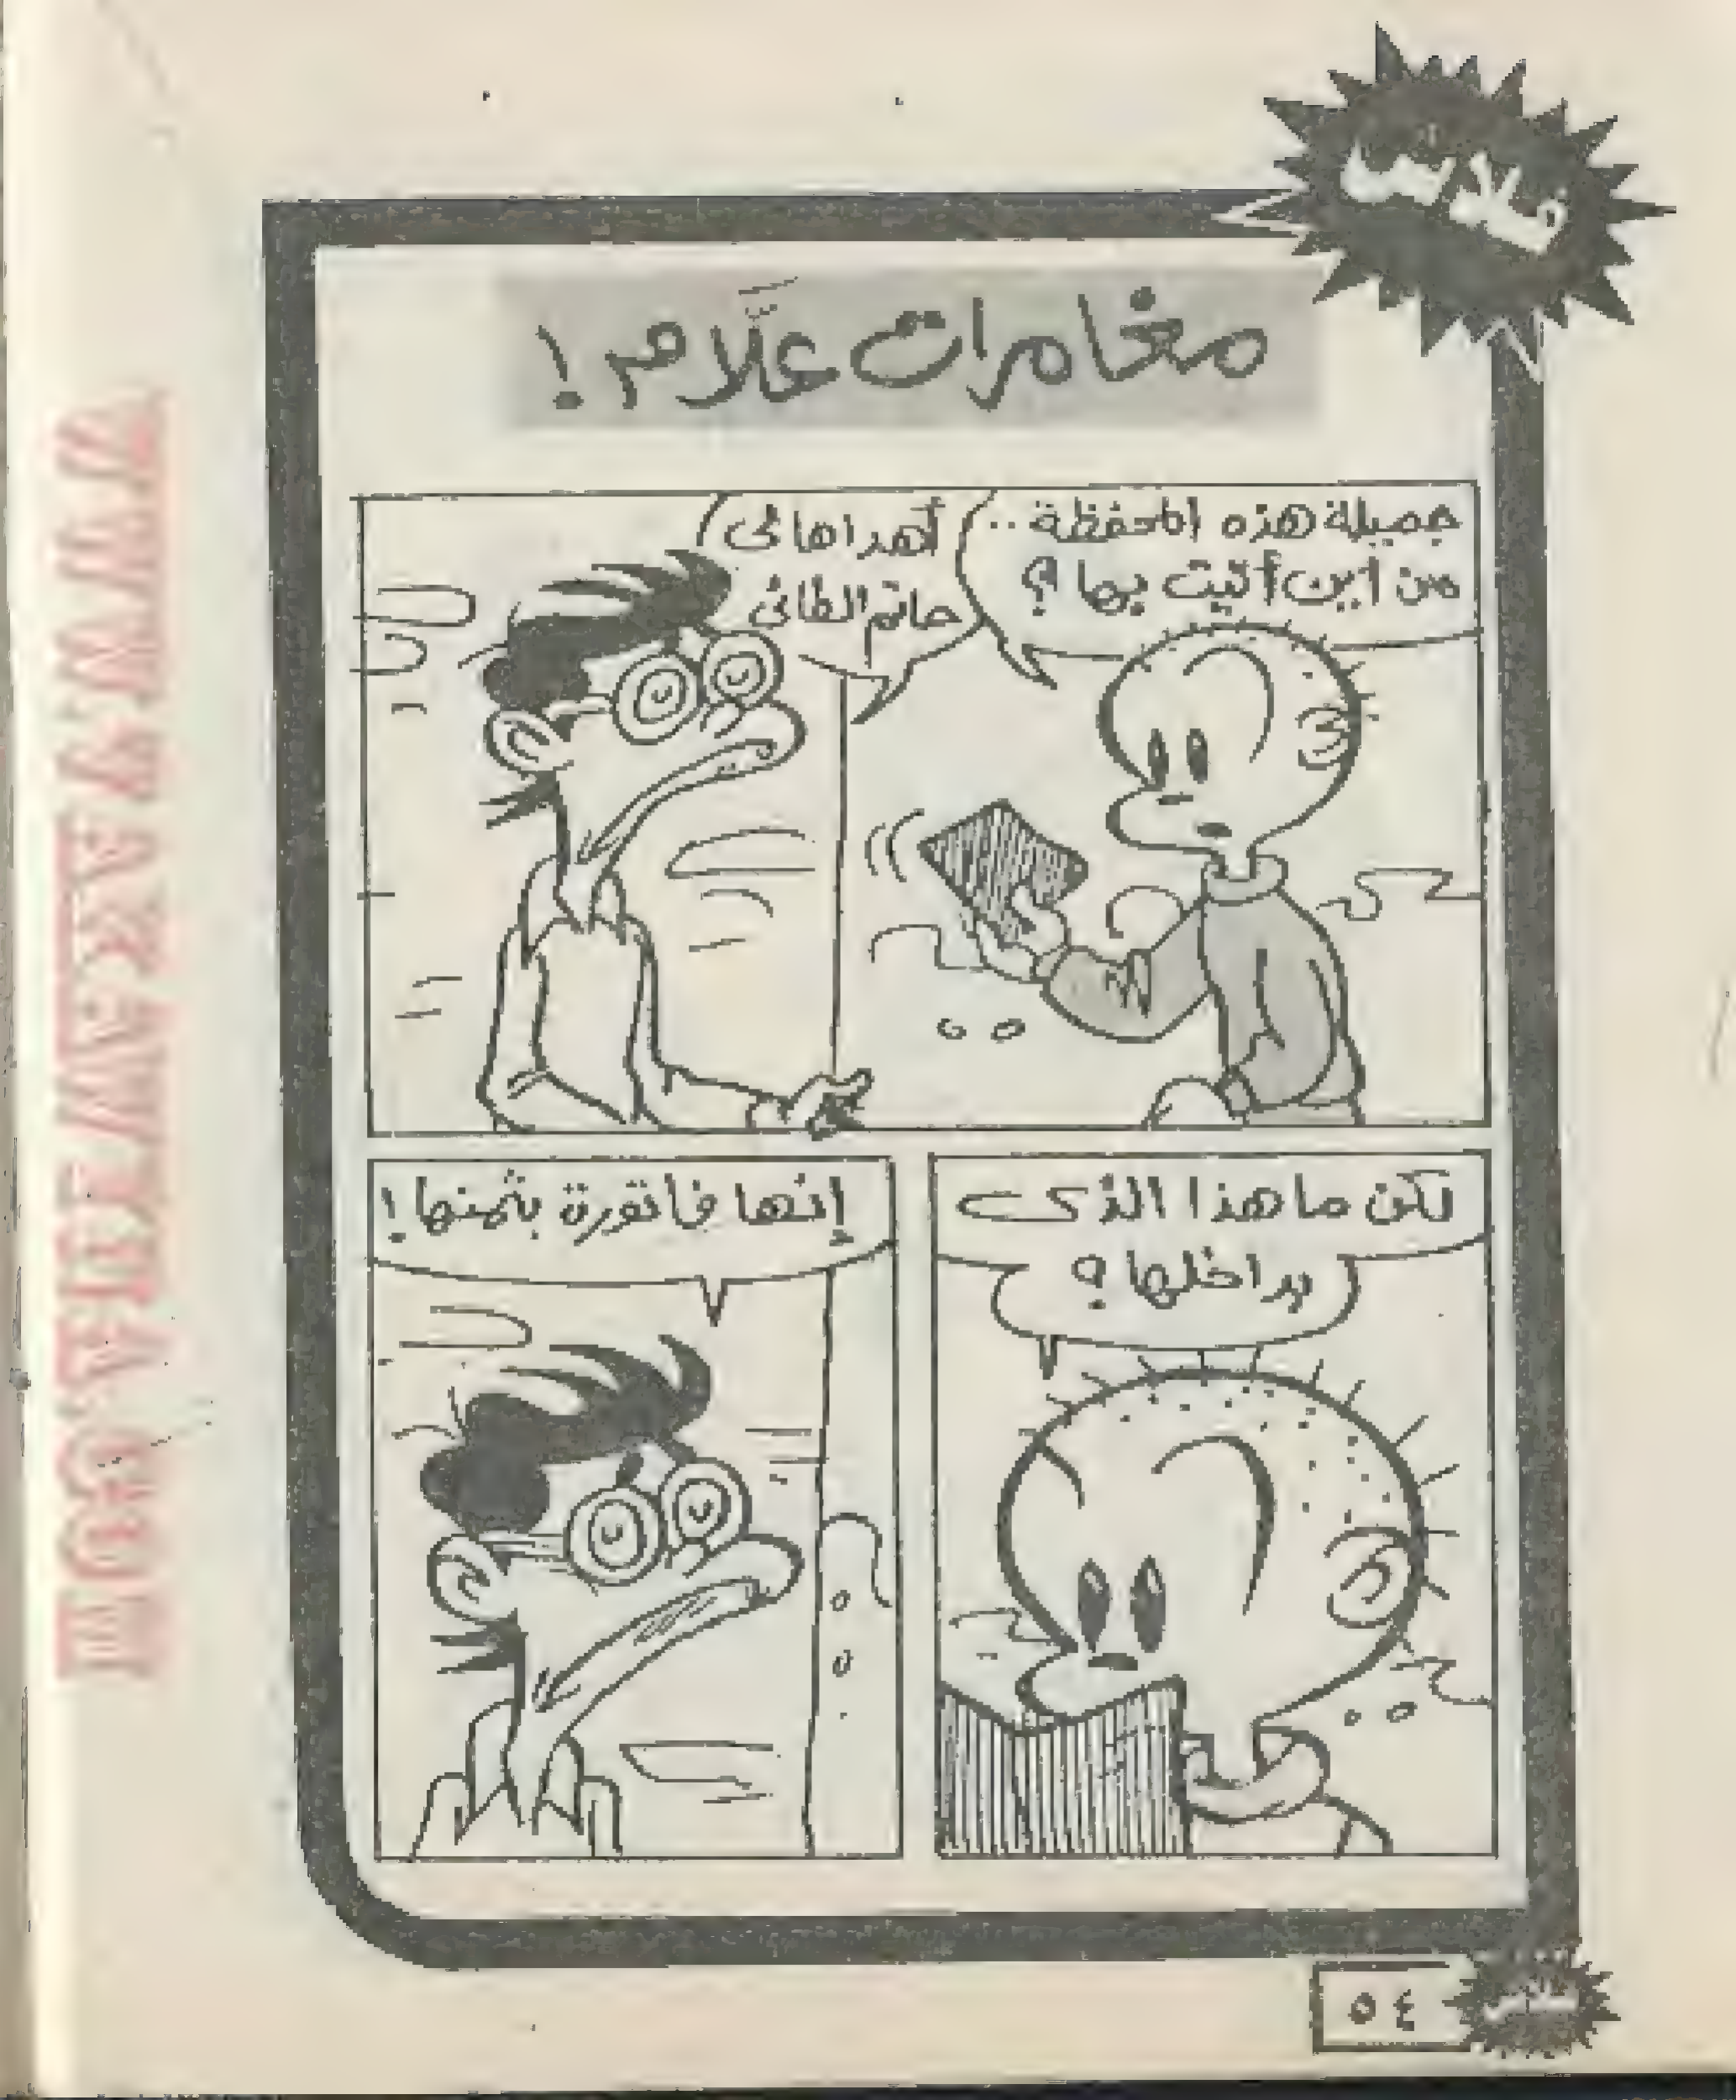 فلاش
مغامرات علَّام !
جميلة هذه المحفظة ..
من أين أتيت بها ؟
أهداها لى
حاتم الطائى
لكن ما هذا الذى
بداخلها ؟
إنها فاتورة بثمنها !
٥٤
فلاش